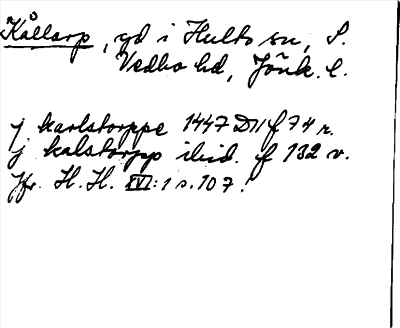 Kållarp, gd i Hults sn, S.
Vedbo hd, Jönk. l.
j karlstorppe 1447 D11 f 74 r.
j kalstorpp ibid. f 132 v.
Jfr H. H. XVI:1 s. 107.